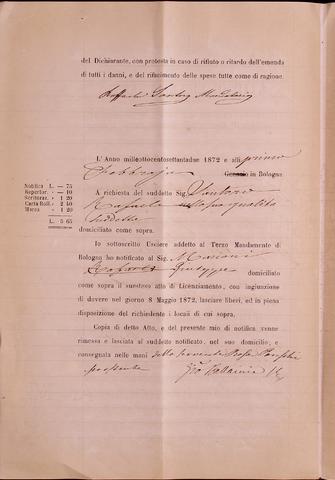 del Dichiarante, con protesta in caso di rifiuto o ritardo dell'emenda
di tutti i danni, e del rifacimento delle spese tutte come di ragione.
Raffaele Santoro
L'Anno milleottocentosettantadue 1872 e alli primo
Febbrajo Gennaio in Bologna
Notifica L. — 75
Repertor. » — 10
Scritturaz. » 1 20
Carta Boll. » 2 40
Marca » 1 20
L. 5 65
A richiesta del suddetto Sig. Santoro
Rafaele nella sua qualità
suddetta
domiciliato come sopra.
Io sottoscritto Usciere addetto al Terzo Mandamento di
Bologna ho notificato al Sig. Mariani
Giuseppe domiciliato
come sopra il suesteso atto di Licenziamento, con ingiunzione
di dovere nel giorno 8 Maggio 1872, lasciare liberi, ed in piena
disposizione del richiedente i locali di cui sopra.
Copia di detto Atto, e del presente mio di notifica venne
rimessa e lasciata al suddetto notificato, nel suo domicilio; e
consegnata nelle mani della